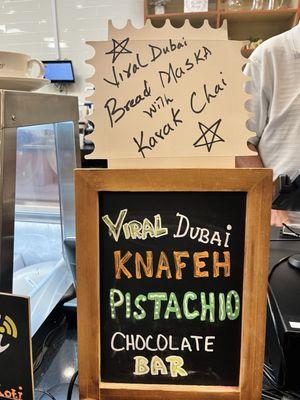 Viral Dubai
Bread Maska
with
Karak Chai
Viral Dubai
Knafeh
Pistachio
Chocolate
Bar
Roti